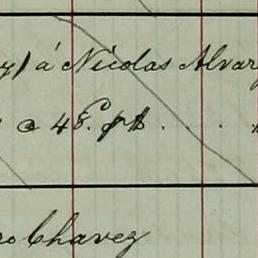 y) á Nicolas Alvar
@ 48.
ro Chavez